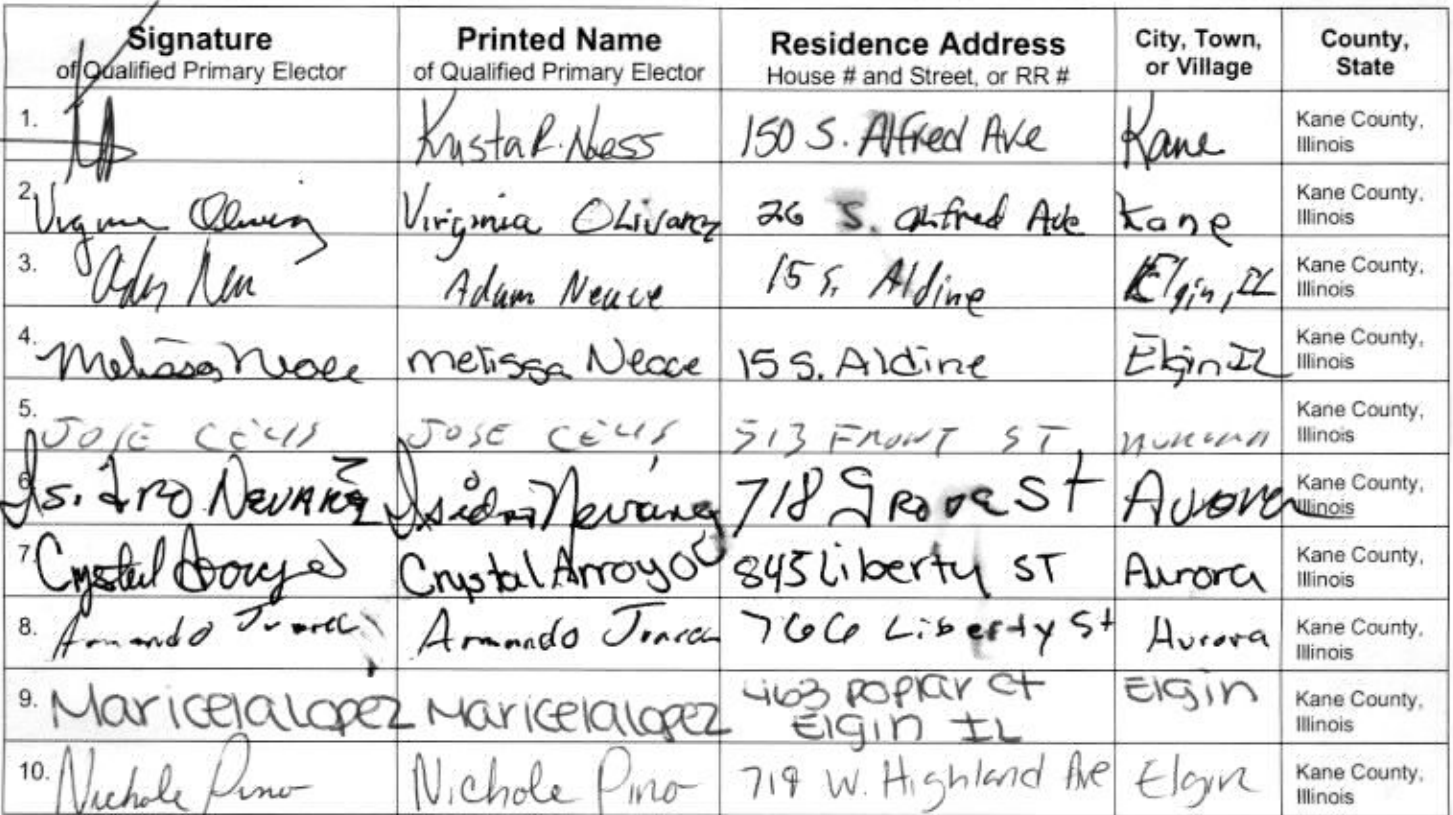 Signature Printed Name Residence Address City, Town, County,
of Qualified Primary Elector of Qualified Primary Elector House # and Street, or RR # or Village State
1. Krista R. Ness 150 S. Alfred Ave Kane Kane County, Illinois
2. Virginia Olivarez 26 S. Alfred Ave Kane Kane County, Illinois
3. Adam Neace 15 S. Aldine Elgin, IL Kane County, Illinois
4. Melissa Neace melissa Neace 15 S. Aldine Elgin IL Kane County, Illinois
5. JOSE CELIS JOSE CELIS 513 FRONT ST Kane County, Illinois
6. Isidro NEVAREZ Isidro Nevarez 718 Grove St Aurora Kane County, Illinois
7. Crystal Arroyo Crystal Arroyo 845 Liberty ST Aurora Kane County, Illinois
8. Armando Armando 766 Liberty St Aurora Kane County, Illinois
9. Maricela Lopez Maricela Lopez 463 Poplar Ct Elgin Kane County, Illinois
Elgin IL
10. Nichole Pino Nichole Pino 719 W. Highland Ave Elgin Kane County, Illinois